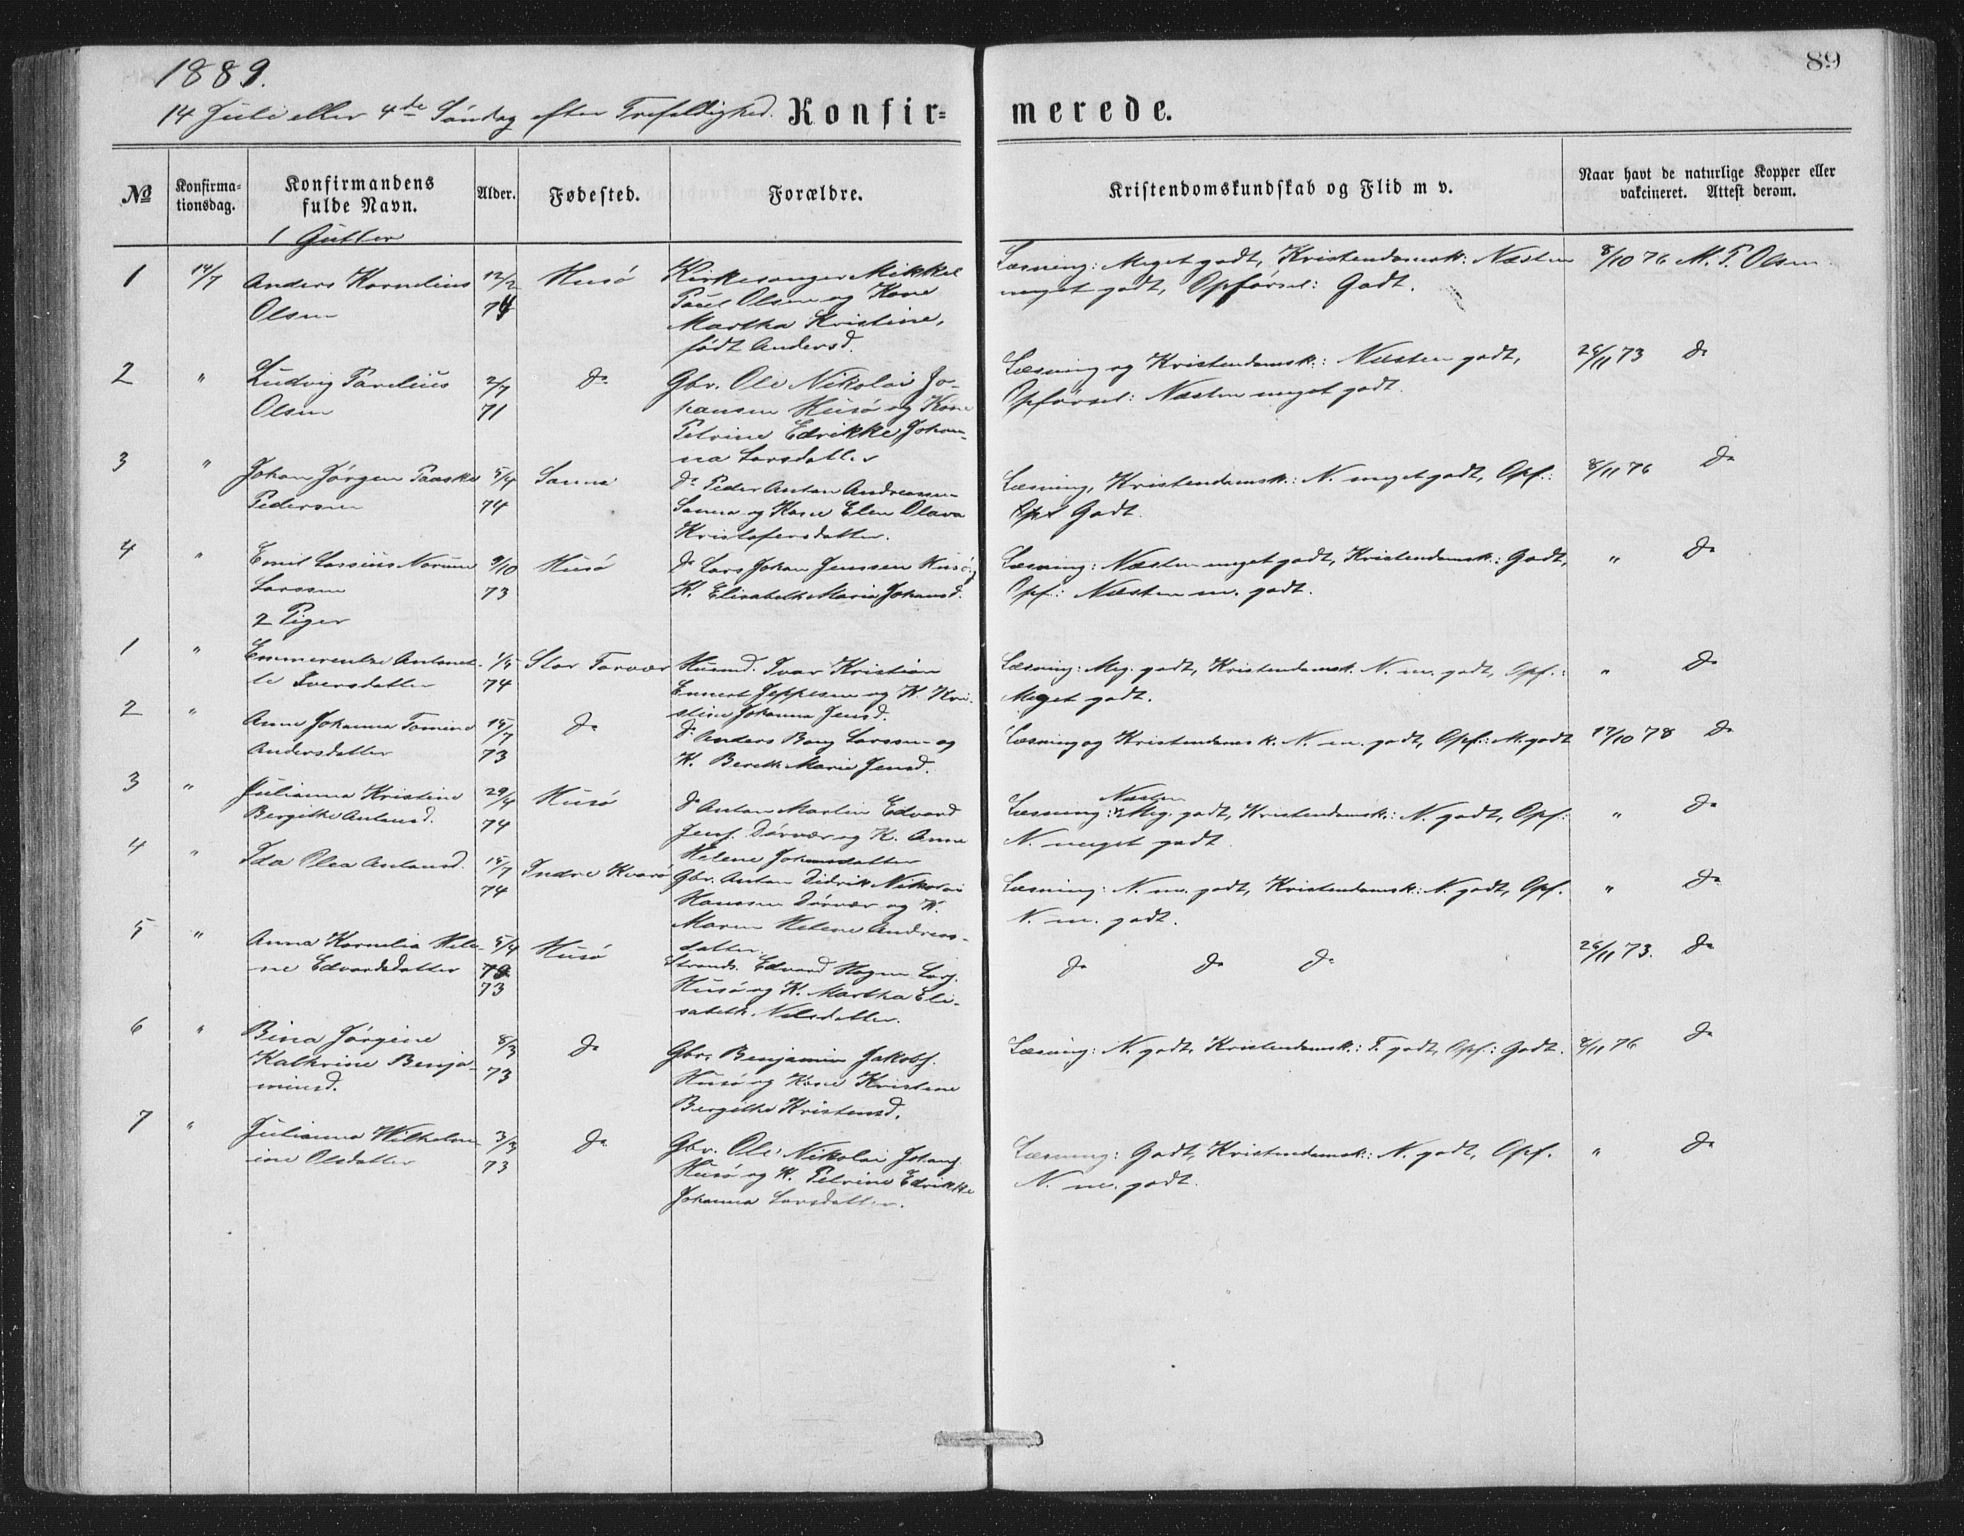 1889.
89
14 Juli eller 4de Søndag efter Trefoldighed. Konfir= merede.
№ Konfirma=tionsdag. Konfirmandens fulde Navn. Alder. Fødested. Forældre. Kristendomskundskab og Flid m v. Naar havt de naturlige Kopper eller vakcineret. Attest derom.
1 Gutter
1 14/7 Anders Kornelius 12/2 Husø Kirkesanger Mikkel Læsning: Meget godt, Kristendomsk: Næsten 8/10 76 M. P. Olsen
Olsen 74 Paul Olsen og Kone meget godt, Opførsel: Godt.
Martha Kristine,
født Andersd.
2 " Ludvig Parelius 2/7 do Gbr. Ole Nikolai Jo- Læsning og Kristendomsk: Næsten godt, 26/11 73 do
Olsen 71 hansen Husø og Kone Opførsel: Næsten meget godt.
Petrine Edrikke Johan-
na Larsdatter
3 " Johan Jørgen Paaske 5/4 Sanna do Peder Anton Andreassen Læsning, Kristendomsk: N. meget godt, Opf.: 8/11 76 do
Pedersen 74 Sanna og Kone Elen Olava Godt.
Kristofersdatter.
4 " Emil Larsius Norum 9/10 Husø do Lars Johan Jenssen Husø Læsning: Næsten meget godt, Kristendomsk: Godt, " do
Larssen 73 K. Elisabeth Maria Johansd. Opf.: Næsten m. godt.
2 Piger
1 " Emmerentze Antonet- 1/5 Stor Forvær Husmd. Ivar Kristian Læsning: Meg. godt, Kristendomsk. N. m. godt, Opf.: " do
te Iversdatter 74 Ennert Jeppesen og K. Kri- Meget godt.
stine Johanna Jensd.
2 " Anne Johanna Tomine 15/7 do do Anders Bang Larssen og Læsning og Kristendomsk: N. m. godt, Opf.: M. godt 17/10 78 do
Andersdatter 73 K. Bereth Marie Jensd.
3 " Julianna Kristine 29/4 Husø do Anton Martin Edvard Læsning: Næsten Meg. godt, Kristendomsk: N. godt, Opf: " do
Bergithe Antonsd. 74 Jens. Dørvær og K. Anne N. meget godt
Helene Johansdatter
4 " Ida Olea Antonsd. 15/7 Indre Kvarø Gbr. Anton Didrik Nikolai Læsning: N. m. godt, Kristendomsk: N. godt, Opf. " do
74 Hanssen Dørvær og K. N. m. godt.
Maren Helene Andreas-
datter
5 " Anna Kornelia Hele- 5/4 Husø Strands. Edvard Hagen Lars. do do do 26/11 73. do
ne Edvardsdatter 73 Husø og K. Martha Eli-
sabeth Nilsdatter.
6 " Bina Jørgine 8/3 do Gbr. Benjamin Jakobs. Læsning: N. godt, Kristendomsk: T. godt, Opf.: Godt. 8/11 76 do
Kathrine Benja- 73 Husø og Kone Kristine
minsd. Bergithe Kristensd.
7 " Julianna Wilhelm- 3/3 do Gbr. Ole Nikolai Johans. Læsning: Godt, Kristendomsk: N. godt, Opf. " do
ine Olsdatter 73 Husø og K. Petrine Edrikke N. m. godt.
Johanna Larsdatter.